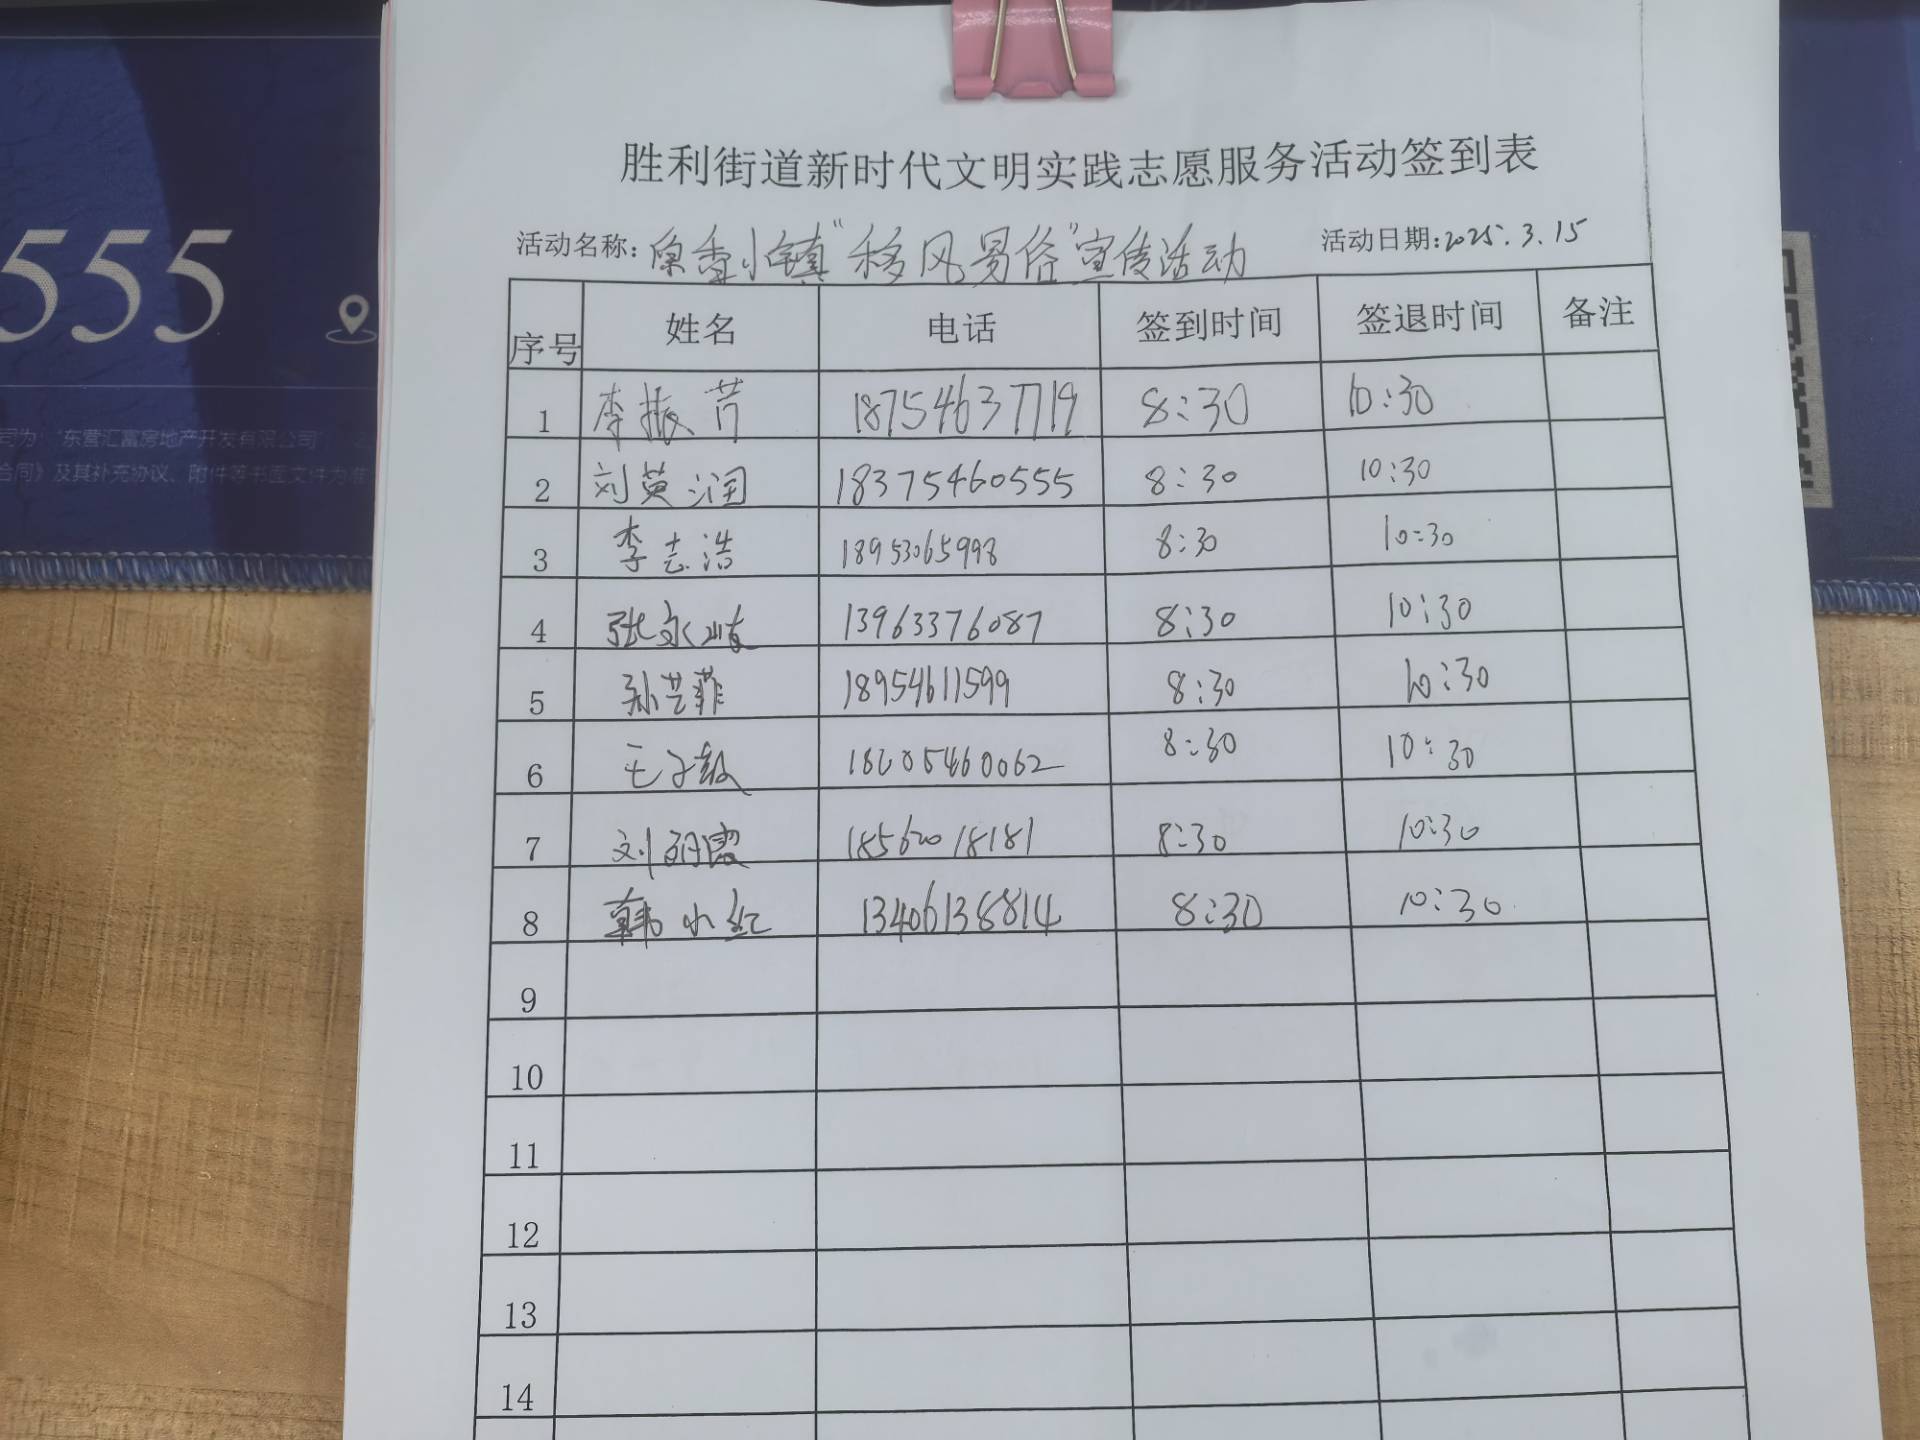 胜利街道新时代文明实践志愿服务活动签到表
活动名称: 小镇“移风易俗”宣传活动 活动日期:2025.3.15
序号 姓名 电话 签到时间 签退时间 备注
1 李振芹 18754637719 8:30 10:30
2 刘英润 18375460555 8:30 10:30
3 李志浩 18953065998 8:30 10:30
4 张永 13963376087 8:30 10:30
5 孙芸菲 18954611599 8:30 10:30
6 王子 18205460062 8:30 10:30
7 刘丽霞 18562018181 8:30 10:30
8 韩小红 13406138814 8:30 10:30
9
10
11
12
13
14
555
司为:“东营汇富房地产开发有限公司”
合同》及其补充协议、附件等书面文件为准